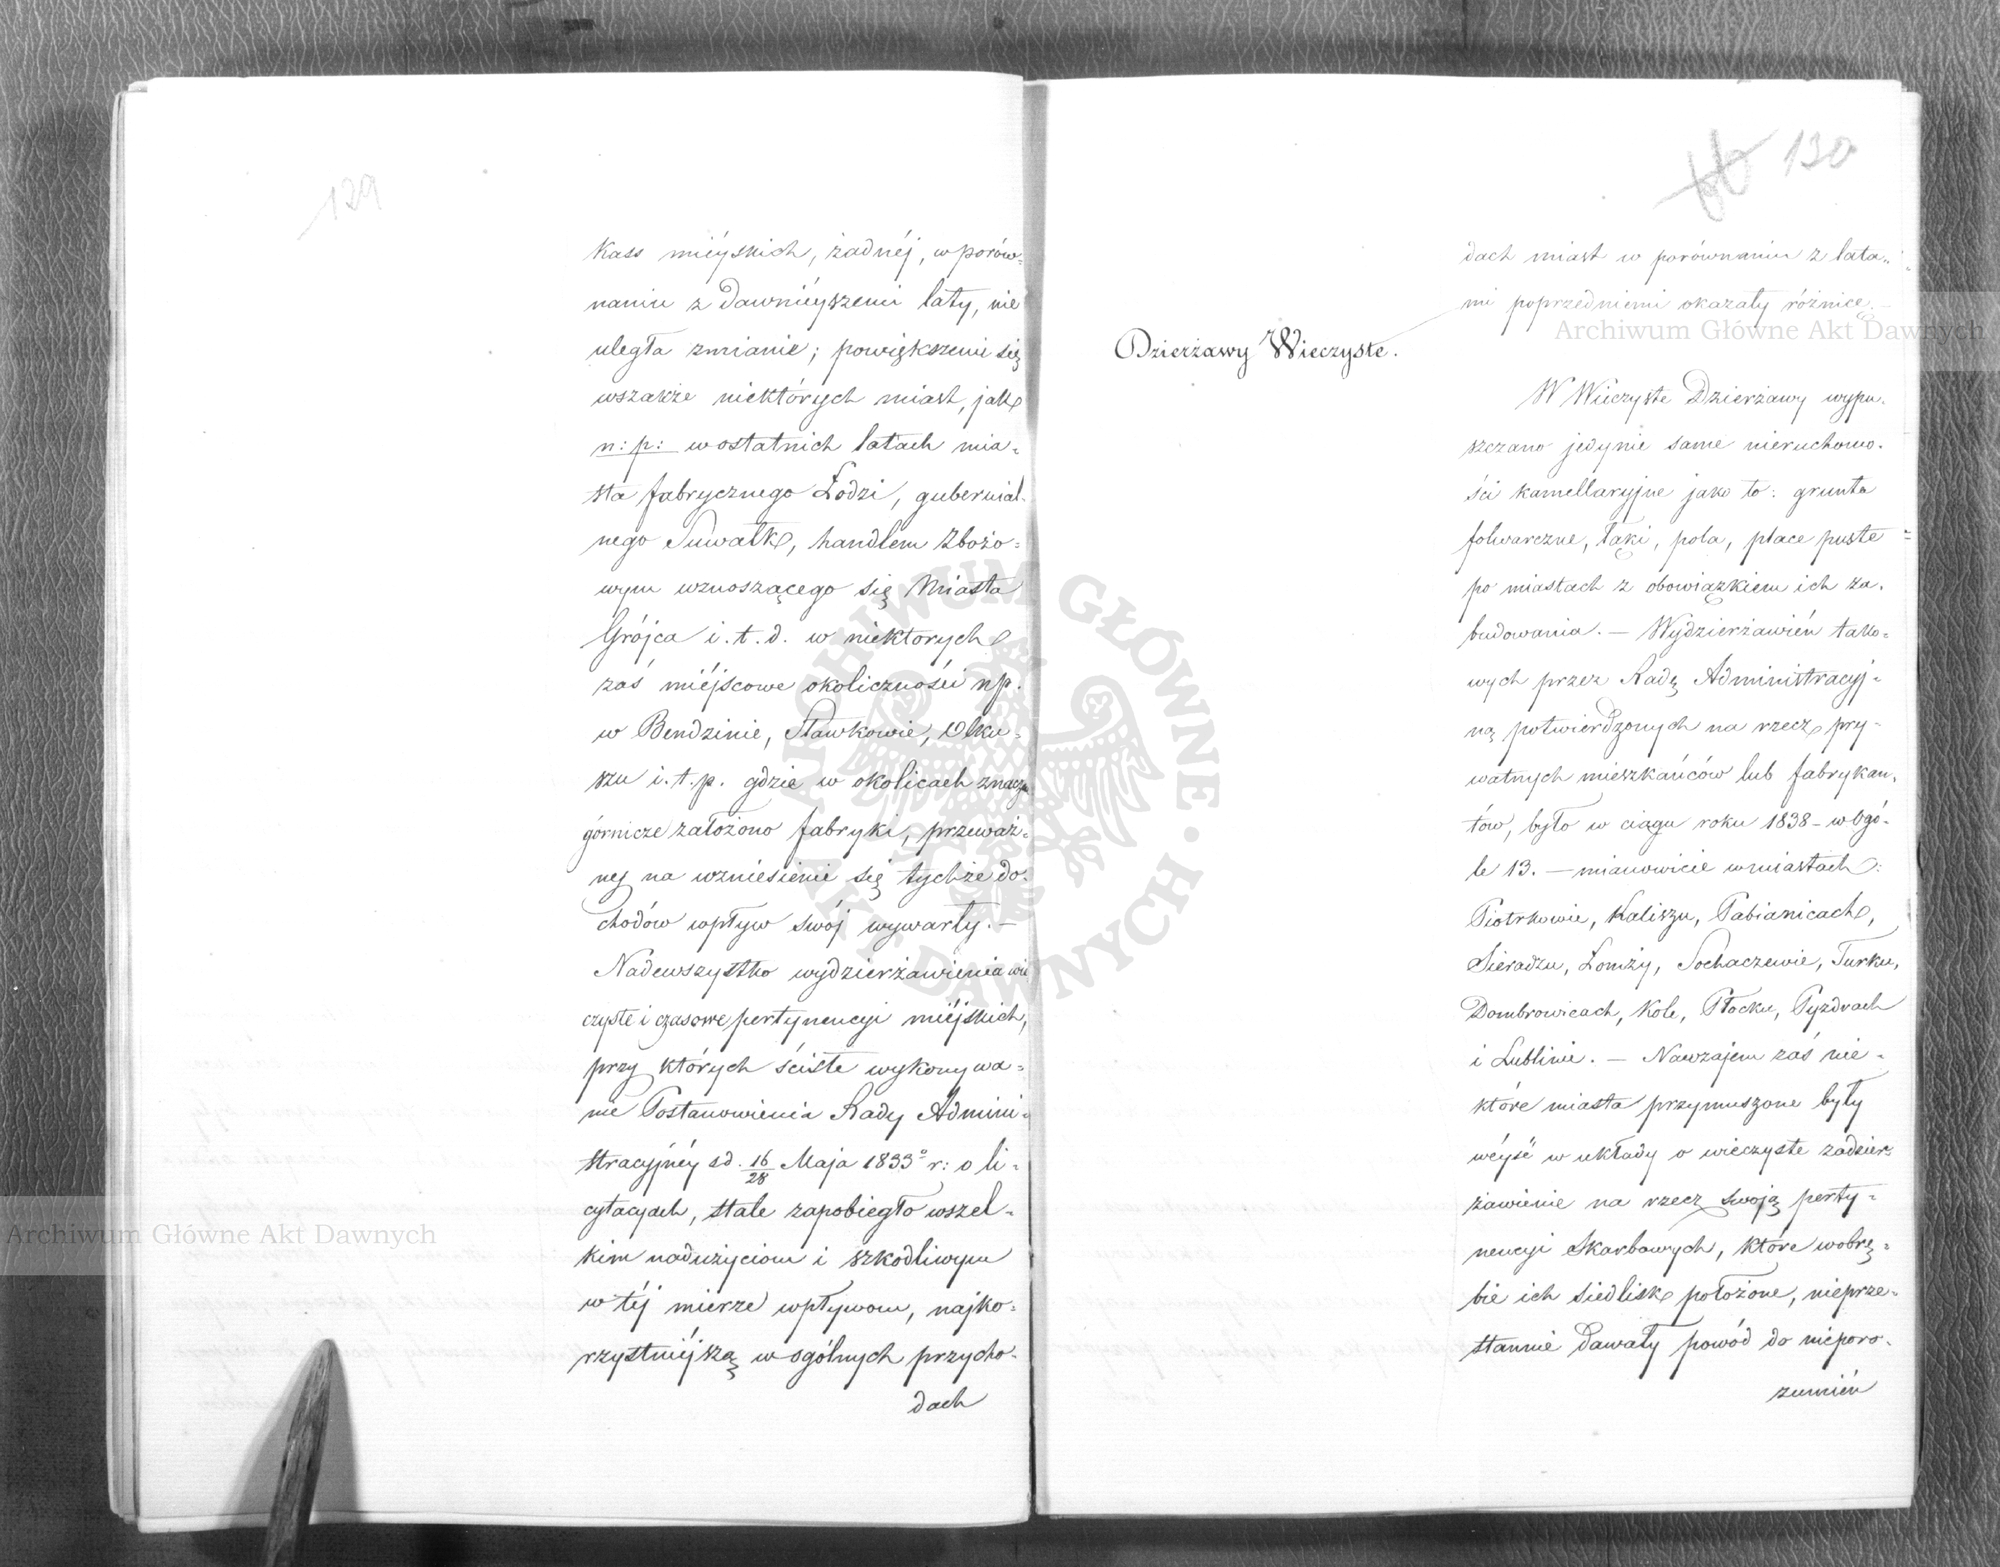 129
kass miéyskich, żadnéj, w porów=
naniu z dawniéyszemi laty, nie
uległa zmianie; powiększenie się
wszakże niektórych miast, jak
n: p: w ostatnich latach mia=
sta fabrycznego Łodzi, gubernial=
nego Suwałk, handlem zbożo=
wym wznoszącego się Miasta
Grójca i. t. d. w niektorych
zaś miéjscowe okoliczności np.
w Bendzinie, Sławkowie, Olku=
szu i. t. p. gdzie w okolicach znaczne
górnicze założono fabryki, przeważ=
ney na wzniesienie się tychże do=
chodów wpływ swój wywarły. —
Nadewszystko wydzierżawienia wie
czyste i czasowe pertynencyi miéjskich,
przy których ścisłe wykonywa=
nie Postanowienia Rady Admini=
stracyjnéy z d. 16/28 Maja 1833º r: o li=
cytacyach, stale zapobiegło wszel=
kim nadużyciom i szkodliwym
w téj mierze wpływom, najko=
rzystniéjszą w ogólnych przycho=
dach
130
dach miast w porównaniu z lata=
mi poprzedniemi okazały różnicę. —
Dzierżawy Wieczyste.
W Wieczyste Dzierżawy wypu=
szczano jedynie same nieruchomo=
ści kamellaryjne jako to: grunta
folwarczne, łąki, pola, place puste
po miastach z obowiązkiem ich za=
budowania. — Wydzierżawień tako=
wych przez Radę Administracyj=
ną potwierdzonych na rzecz pry=
watnych mieszkańców lub fabrykan=
tów, było w ciągu roku 1838 — w Ogó=
le 13. — mianowicie w miastach:
Piotrkowie, Kaliszu, Pabianicach,
Sieradzu, Łomży, Sochaczewie, Turku,
Dombrowicach, Kole, Płocku, Pyzdrach
i Lublinie. — Nawzajem zaś nie=
które miasta przymuszone były
wéyść w układy o wieczyste zadzier=
żawienie na rzecz swoją perty=
nencyi Skarbowych, które w obrę=
bie ich siedlisk położone, nieprze=
stannie dawały powód do nieporo=
zumień
Archiwum Główne Akt Dawnych
Archiwum Główne Akt Dawnych
ARCHIWUM GŁÓWNE AKT DAWNYCH